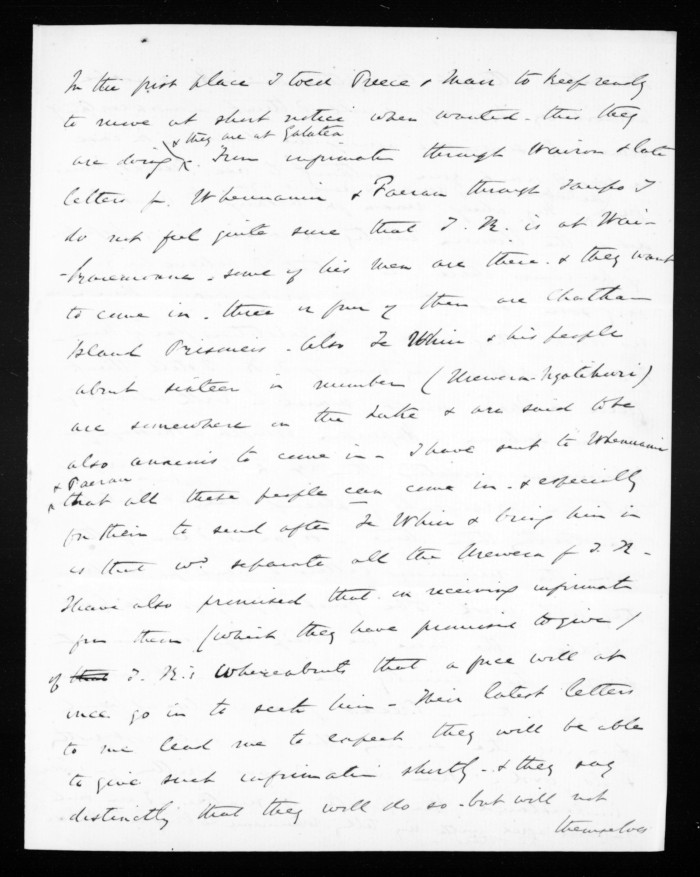 In the first place I told Preece & Mair to keep ready
to move at short notice when wanted - this they
& they are at Galatea
are doing. From information through Wairoa & late
letters fr. Whenuanui & Paerau through Taupo I
do not feel quite sure that T. K. is at Wai-
-karemoana - some of his men are there - & they want
to come in - three or four of them are Chatham
Island Prisoners - Also Te Whiu & his people
about sixteen in number (Urewera-Ngatihuri)
are somewhere in the Lake & are said to be
also anxious to come in - I have sent to Whenuanui
& Paerau
that all these people can come in - & especially
for them to send after Te Whiu & bring him in
as that wd. separate all the Urewera f T. K. -
I have also promised that on receiving informatn
from them (which they have promised to give)
of that T. K.'s Whereabouts that a force will at
once go in to seek him - Their latest letters
to me lead me to expect they will be able
to give such information shortly - & they say
distinctly that they will do so - but will not
themselves